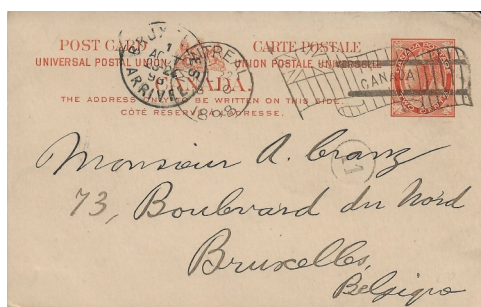 POST CARD CARTE POSTALE
UNIVERSAL POSTAL UNION UNION POSTALE UNIVERSELLE
CANADA.
THE ADDRESS TO BE WRITTEN ON THIS SIDE.
CÔTÉ RÉSERVÉ A L'ADRESSE.
ARRIVEE
CANADA
1
Monsieur A. Cranz
73, Boulevard du Nord
Bruxelles,
Belgique